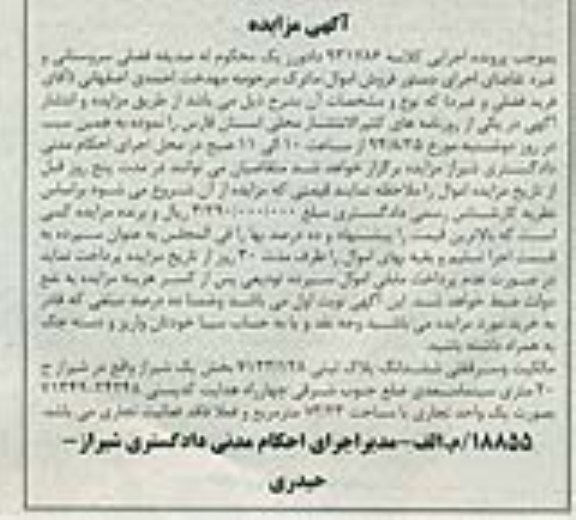 آگهی مزایده
بموجب پرونده اجرایی کلاسه ۹۳۱۲۸۶ دادورز یک محکوم له صدیقه فضلی سروستانی و
غیره تقاضای اجرای دستور فروش اموال ماترک مرحومه مهدخت احمدی اصفهانی (آقای
فرید فضلی و غیره) که نوع و مشخصات آن بشرح ذیل می باشد از طریق مزایده و انتشار
آگهی در یکی از روزنامه های کثیرالانتشار محلی استان فارس را نموده به همین سبب
در روز دوشنبه مورخ ۹۴/۸/۲۵ از ساعت ۱۰ الی ۱۱ صبح در محل اجرای احکام مدنی
دادگستری شیراز مزایده برگزار خواهد شد متقاضیان می توانند در مدت پنج روز قبل
از تاریخ مزایده اموال را ملاحظه نمایند قیمتی که مزایده از آن شروع می شود براساس
نظریه کارشناس رسمی دادگستری مبلغ ریال و برنده مزایده کسی
است که بالاترین قیمت را پیشنهاد و ده درصد بها را فی المجلس به عنوان سپرده به
قسمت اجرا تسلیم و بقیه بهای اموال را ظرف مدت ۳۰ روز از تاریخ مزایده پرداخت نماید
در صورت عدم پرداخت مابقی اموال سپرده تودیعی پس از کسر هزینه مزایده به نفع
دولت ضبط خواهد شد. این آگهی نوبت اول می باشد وضمنا ده درصد مبلغی که قادر
به خرید مورد مزایده می باشید وجه نقد و یا به حساب سیبا خودتان واریز و دسته چک
به همراه داشته باشید.
مالکیت وسرقفلی ششدانگ پلاک ثبتی بخش یک شیراز واقع در شیراز خ
۲۰ متری سینماسعدی ضلع جنوب شرقی چهارراه هدایت کدپستی
بصورت یک واحد تجاری با مساحت مترمربع و فعلا فاقد فعالیت تجاری می باشد.
۱۸۸۵۵/م.الف-مدیراجرای احکام مدنی دادگستری شیراز-
حیدری